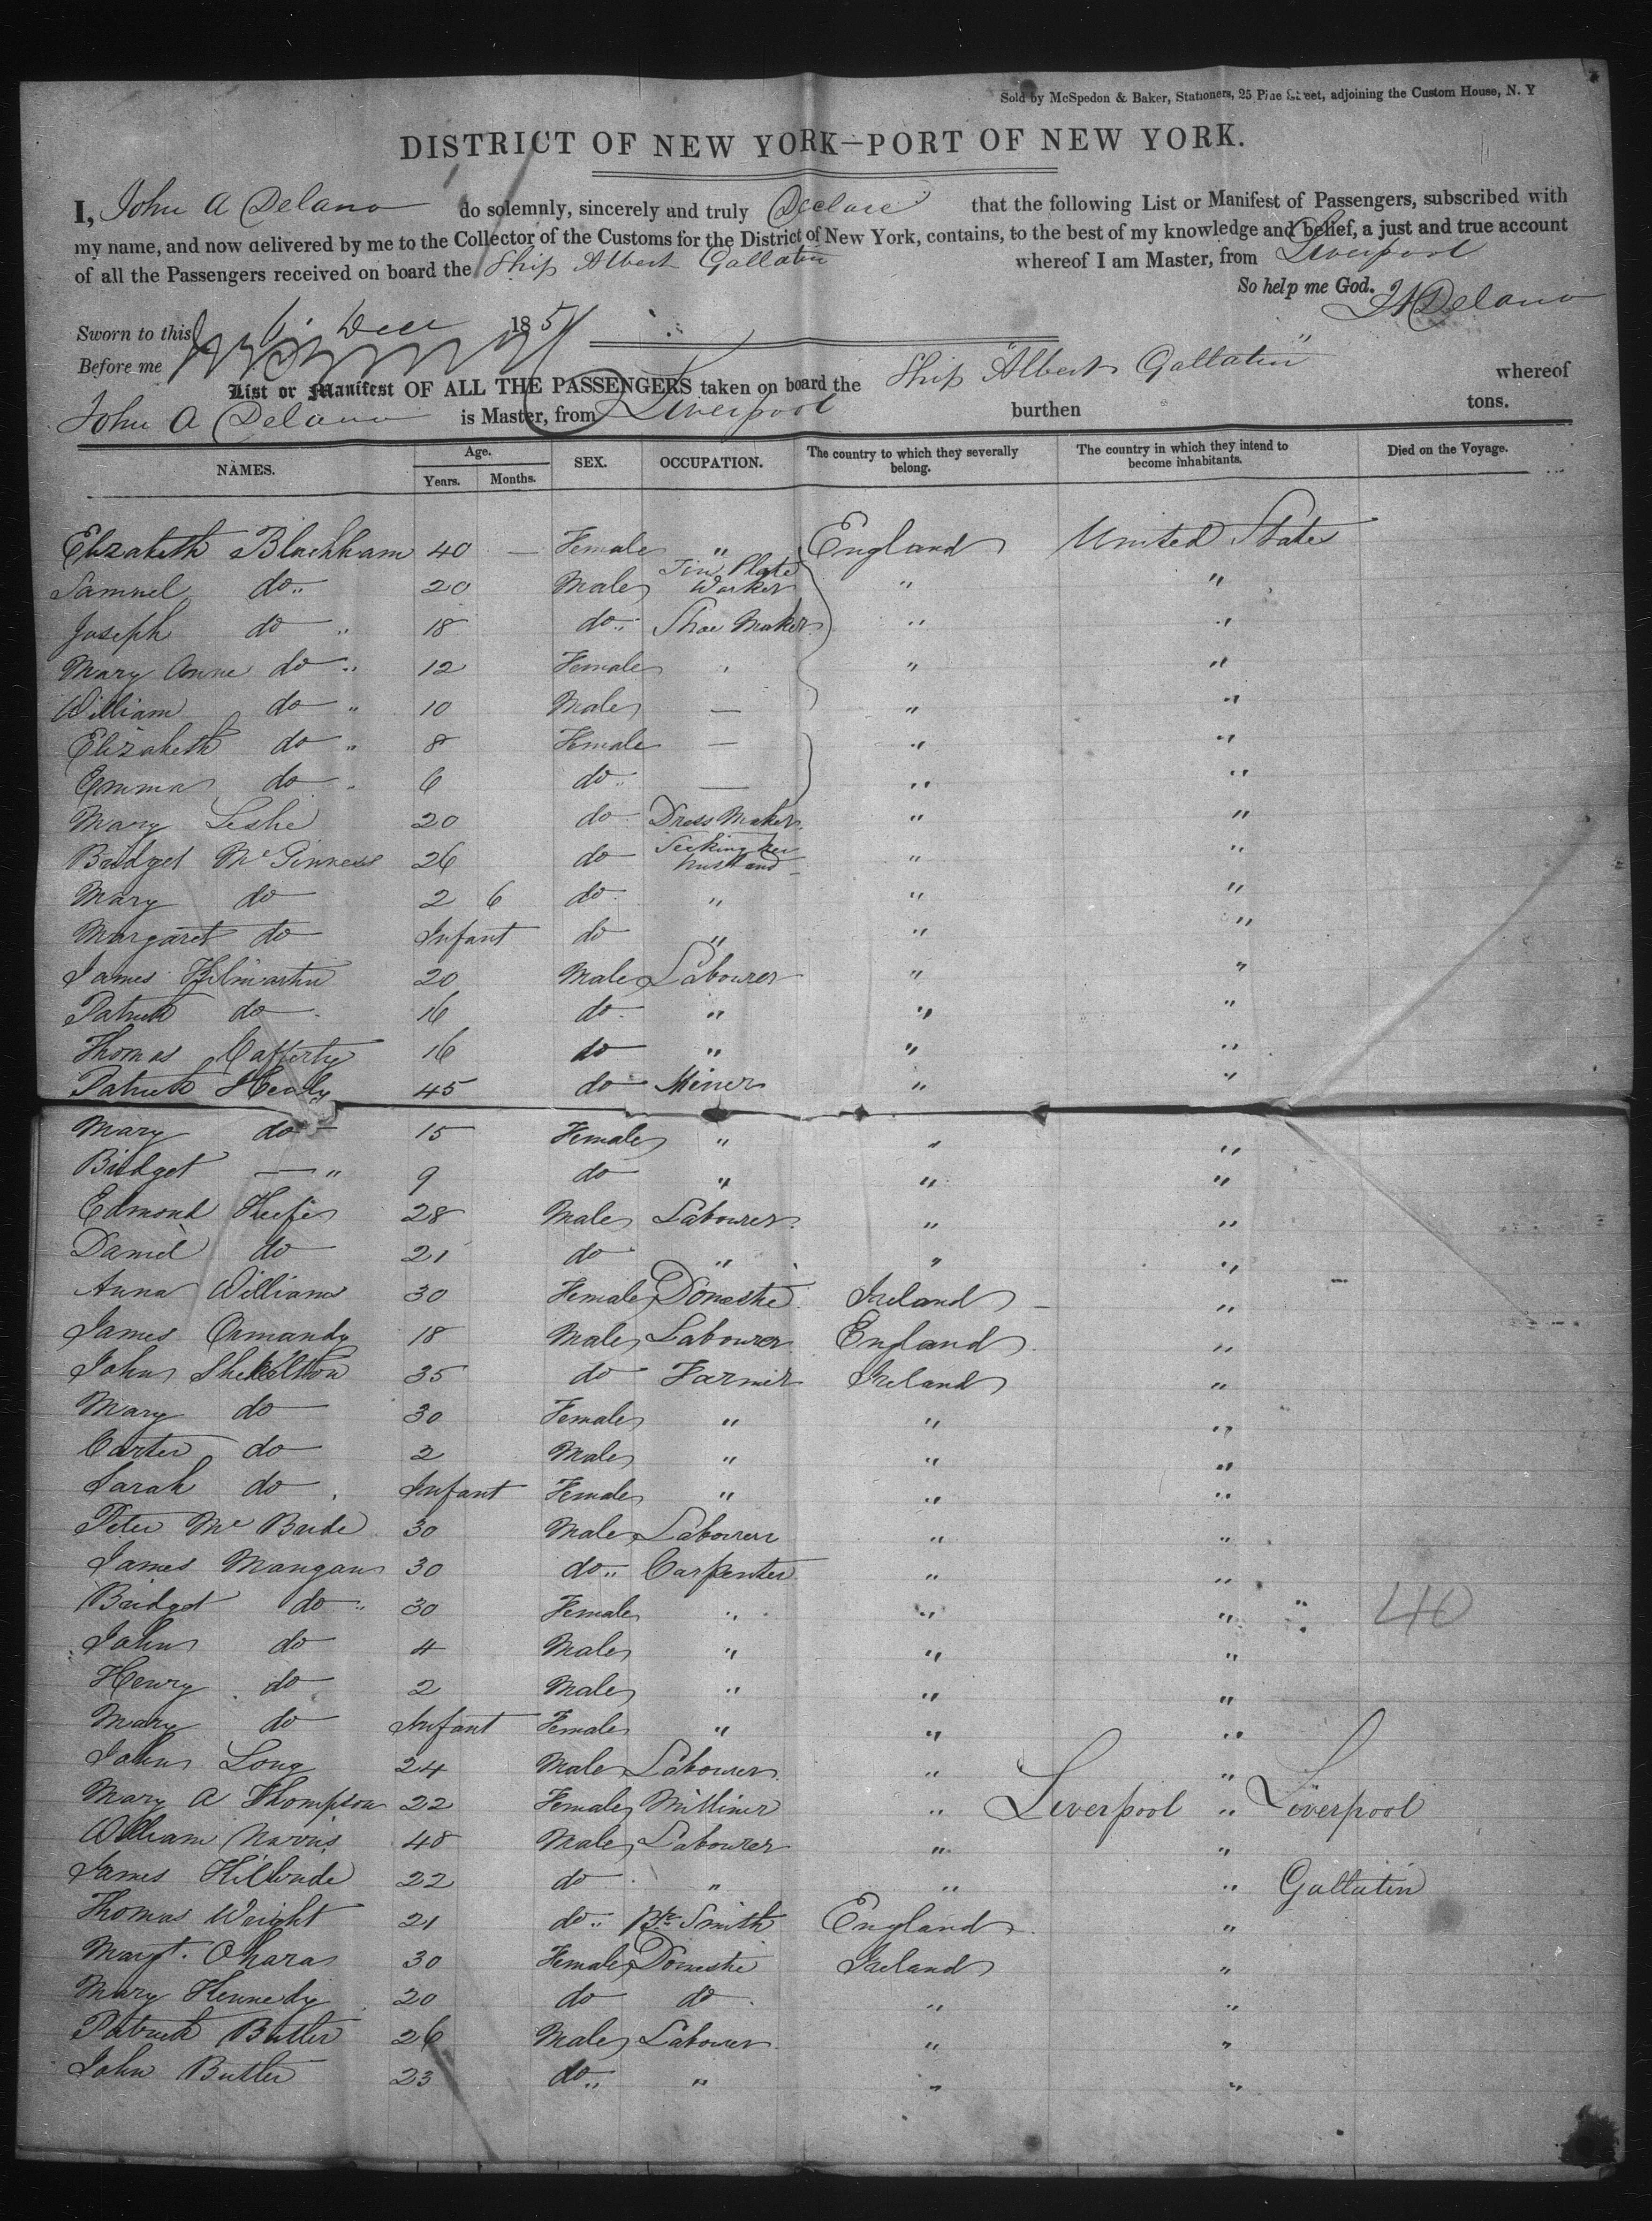 Sold by McSpedon & Baker, Stationers, 25 Pine Street, adjoining the Custom House, N. Y
DISTRICT OF NEW YORK—PORT OF NEW YORK.
I, John A Delano do solemnly, sincerely and truly Declare that the following List or Manifest of Passengers, subscribed with
my name, and now delivered by me to the Collector of the Customs for the District of New York, contains, to the best of my knowledge and belief, a just and true account
of all the Passengers received on board the Ship Albert Gallatin whereof I am Master, from Liverpool
So help me God. J A Delano
Sworn to this 6 Dec 1851
Before me
List or Manifest OF ALL THE PASSENGERS taken on board the Ship "Albert Gallatin" whereof
John A Delano is Master, from Liverpool burthen tons.
NAMES. Age. Years. Months. SEX. OCCUPATION. The country to which they severally belong. The country in which they intend to become inhabitants. Died on the Voyage.
Elizabeth Blackham 40 — Female " England United States
Samuel do " 20 Male Tin Plate Worker " "
Joseph do " 18 do " Shoe Maker " "
Mary Anne do " 12 Female " " "
William do " 10 Male — " "
Elizabeth do " 8 Female — " "
Emma do " 6 do " — " "
Mary Leslie 20 do Dress Maker " "
Bridget McGinness 26 do Seeking her husband " "
Mary do 2 6 do " " "
Margaret do Infant do " " "
James Kilmartin 20 Male Labourer " "
Patrick do 16 do " " "
Thomas Cafferty 16 do " " "
Patrick Healy 45 do Miner " "
Mary do 15 Female " " "
Bridget — " 9 do " " "
Edmond Keefe 28 Male Labourer " "
Daniel do 21 do " " "
Anna Williams 30 Female Domestic Ireland "
James Ormandy 18 Male Labourer England "
John Shekelton 35 do Farmer Ireland "
Mary do 30 Female " " "
Carter do 2 Male " " "
Sarah do Infant Female " " "
Peter McBride 30 Male Labourer " "
James Mangan 30 do " Carpenter " "
Bridget do " 30 Female " " " " 40
John do 4 Male " " "
Henry do 2 Male " " "
Mary do Infant Female " " "
John Long 24 Male Labourer " "
Mary A Thompson 22 Female Milliner " Liverpool " Liverpool
William 48 Male Labourer " "
James Kilbride 22 do " " " Gallatin
Thomas Wright 21 do " Blk Smith England "
Margt. Ohara 30 Female Domestic Ireland "
Mary Kennedy 20 do do " "
Patrick Butler 26 Male Labourer " "
John Butler 23 do " " " "